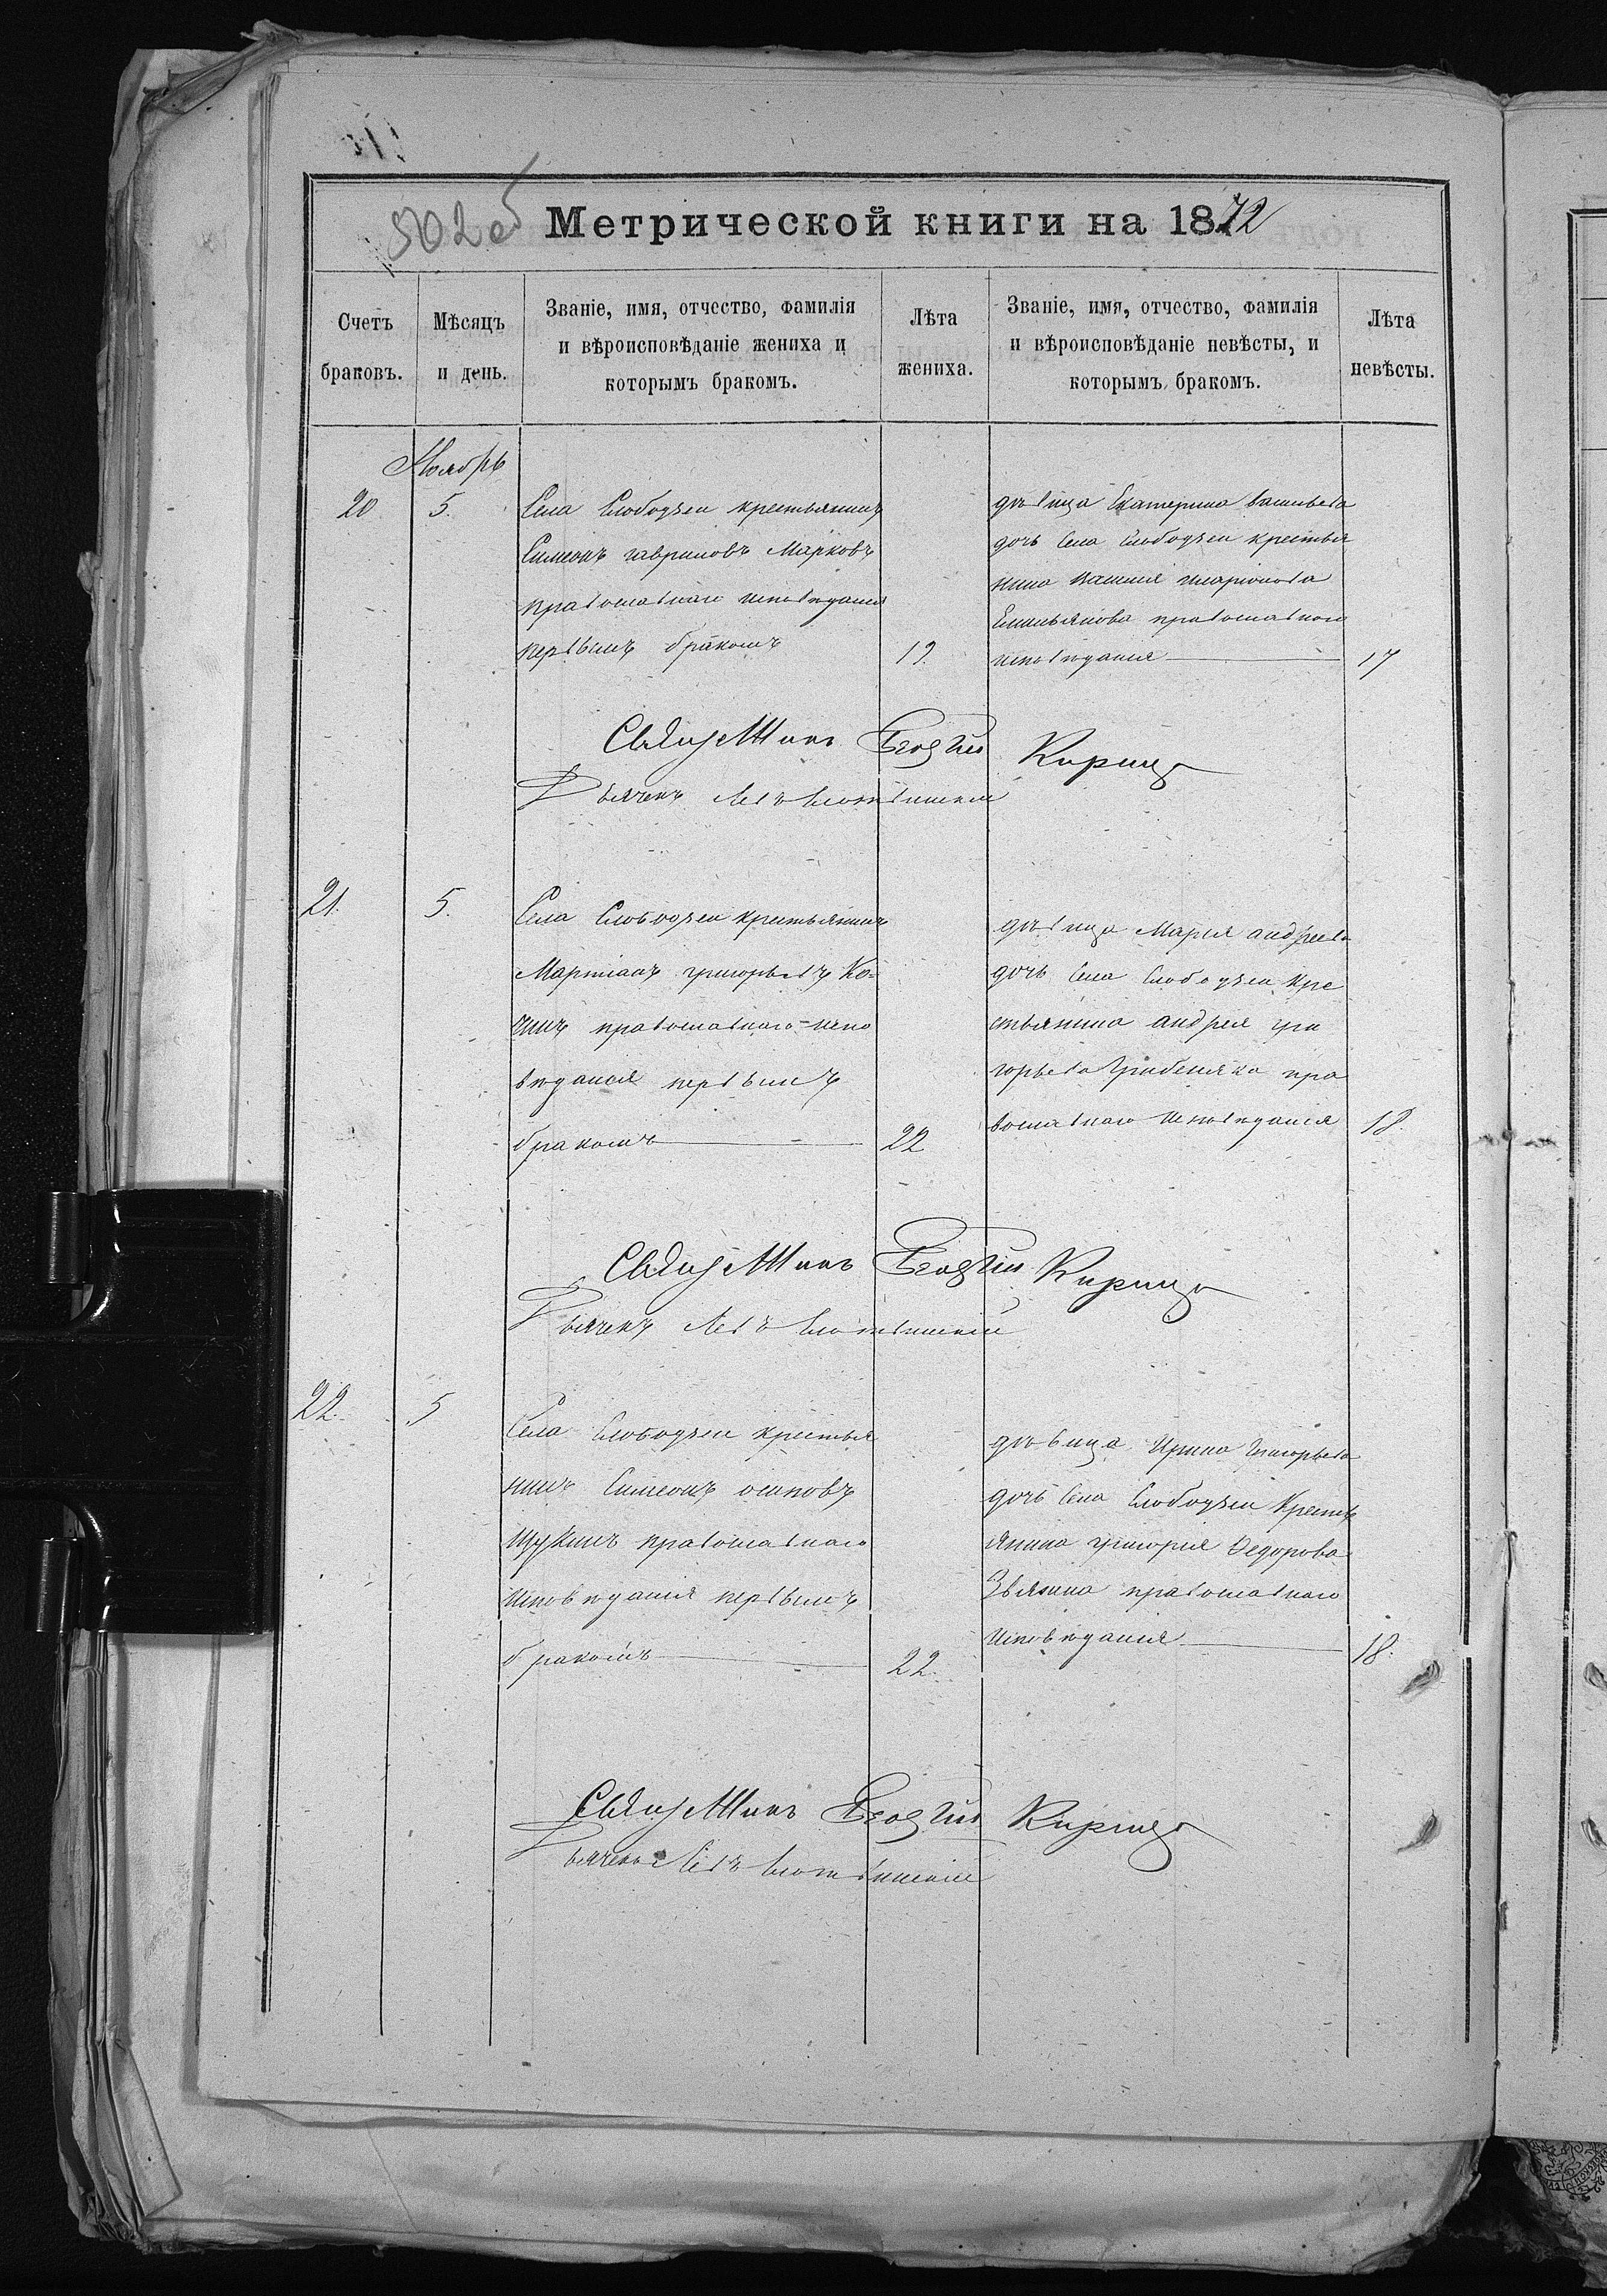 502об
Метрической книги на 1872
Счетъ браковъ.
Мѣсяцъ и день.
Званіе, имя, отчество, фамилія
и вѣроисповѣданіе жениха и
которымъ бракомъ.
Лѣта жениха.
Званіе, имя, отчество, фамилія
и вѣроисповѣданіе невѣсты, и
которымъ бракомъ.
Лѣта невѣсты.
Ноябрь
20
5.
Села Слободзеи крестьянинъ
Симеонъ гавриловъ Марковъ
православнаго исповѣданія
первымъ бракомъ
19.
дѣвица Екатерина васильева
дочь села Слободзеи крестья
нина Василія иларіонова
Емильянова православного
исповѣданія
17
Священникъ Георгій Кирица
Дьячекъ Левъ
21.
5.
Села Слободзеи крестьянинъ
Мартіанъ григорьевъ Ко-
чинъ православнаго испо
вѣданія первымъ
бракомъ
22
дѣвица Марія андреева
дочь села Слободзеи кре
стьянина андрея гри
горьева Грибеняка пра
вославнаго исповѣданія
18.
Священникъ Георгій Кирица
Дьячекъ Левъ
22.
5
Села Слободзеи крестья
нинъ Симеонъ осиповъ
Щукинъ православнаго
исповѣданія первымъ
бракомъ
22.
дѣвица Ирина Григорьева
дочь села Слободзеи Кресть
янина григорія Федорова
Звягина православнаго
исповѣданія
18.
Священникъ Георгій Кирица
Дьячекъ Левъ